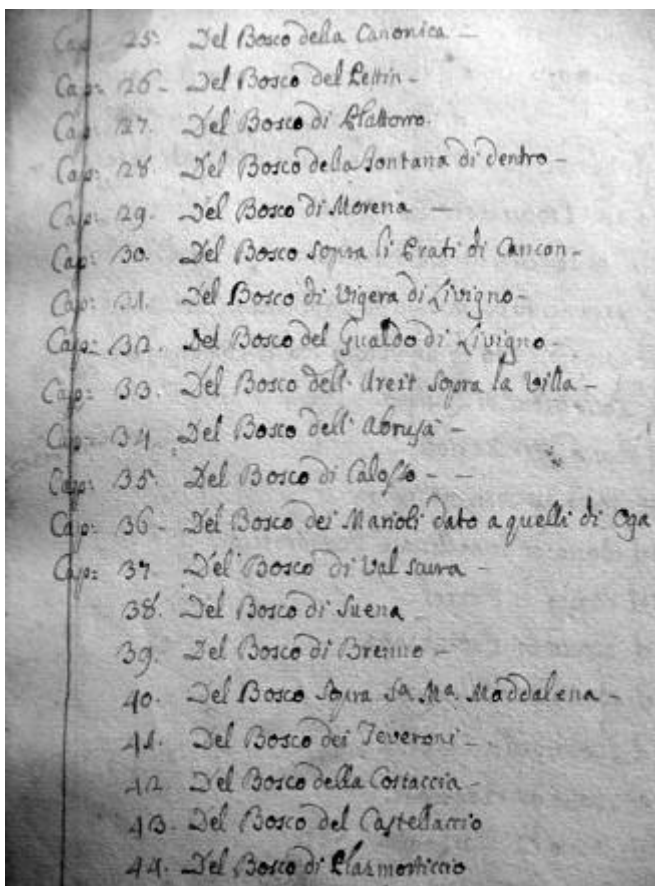 Cap: 25. Del Bosco della Canonica -
Cap: 26 - Del Bosco del Pettin -
Cap: 27. Del Bosco di Plattorro.
Cap: 28. Del Bosco della Fontana di dentro -
Cap: 29. Del Bosco di Morena -
Cap: 30. Del Bosco sopra li Prati di Cancon -
Cap: 31. Del Bosco di Vigera di Livigno -
Cap: 32. Del Bosco del Gualdo di Livigno -
Cap: 33. Del Bosco dell' Areit sopra la Villa -
Cap: 34. Del Bosco dell' Abrusa -
Cap: 35. Del Bosco di Calosso - -
Cap: 36 - Del Bosco dei Marioli dato a quelli di Oga
Cap: 37. Del Bosco di Val scura -
38. Del Bosco di Suena
39. Del Bosco di Brenno -
40. Del Bosco sopra Sa. Ma. Maddalena -
41. Del Bosco dei Teveroni -
42. Del Bosco della Costaccia -
43. Del Bosco del Castellaccio
44. Del Bosco di Plazmorticcio